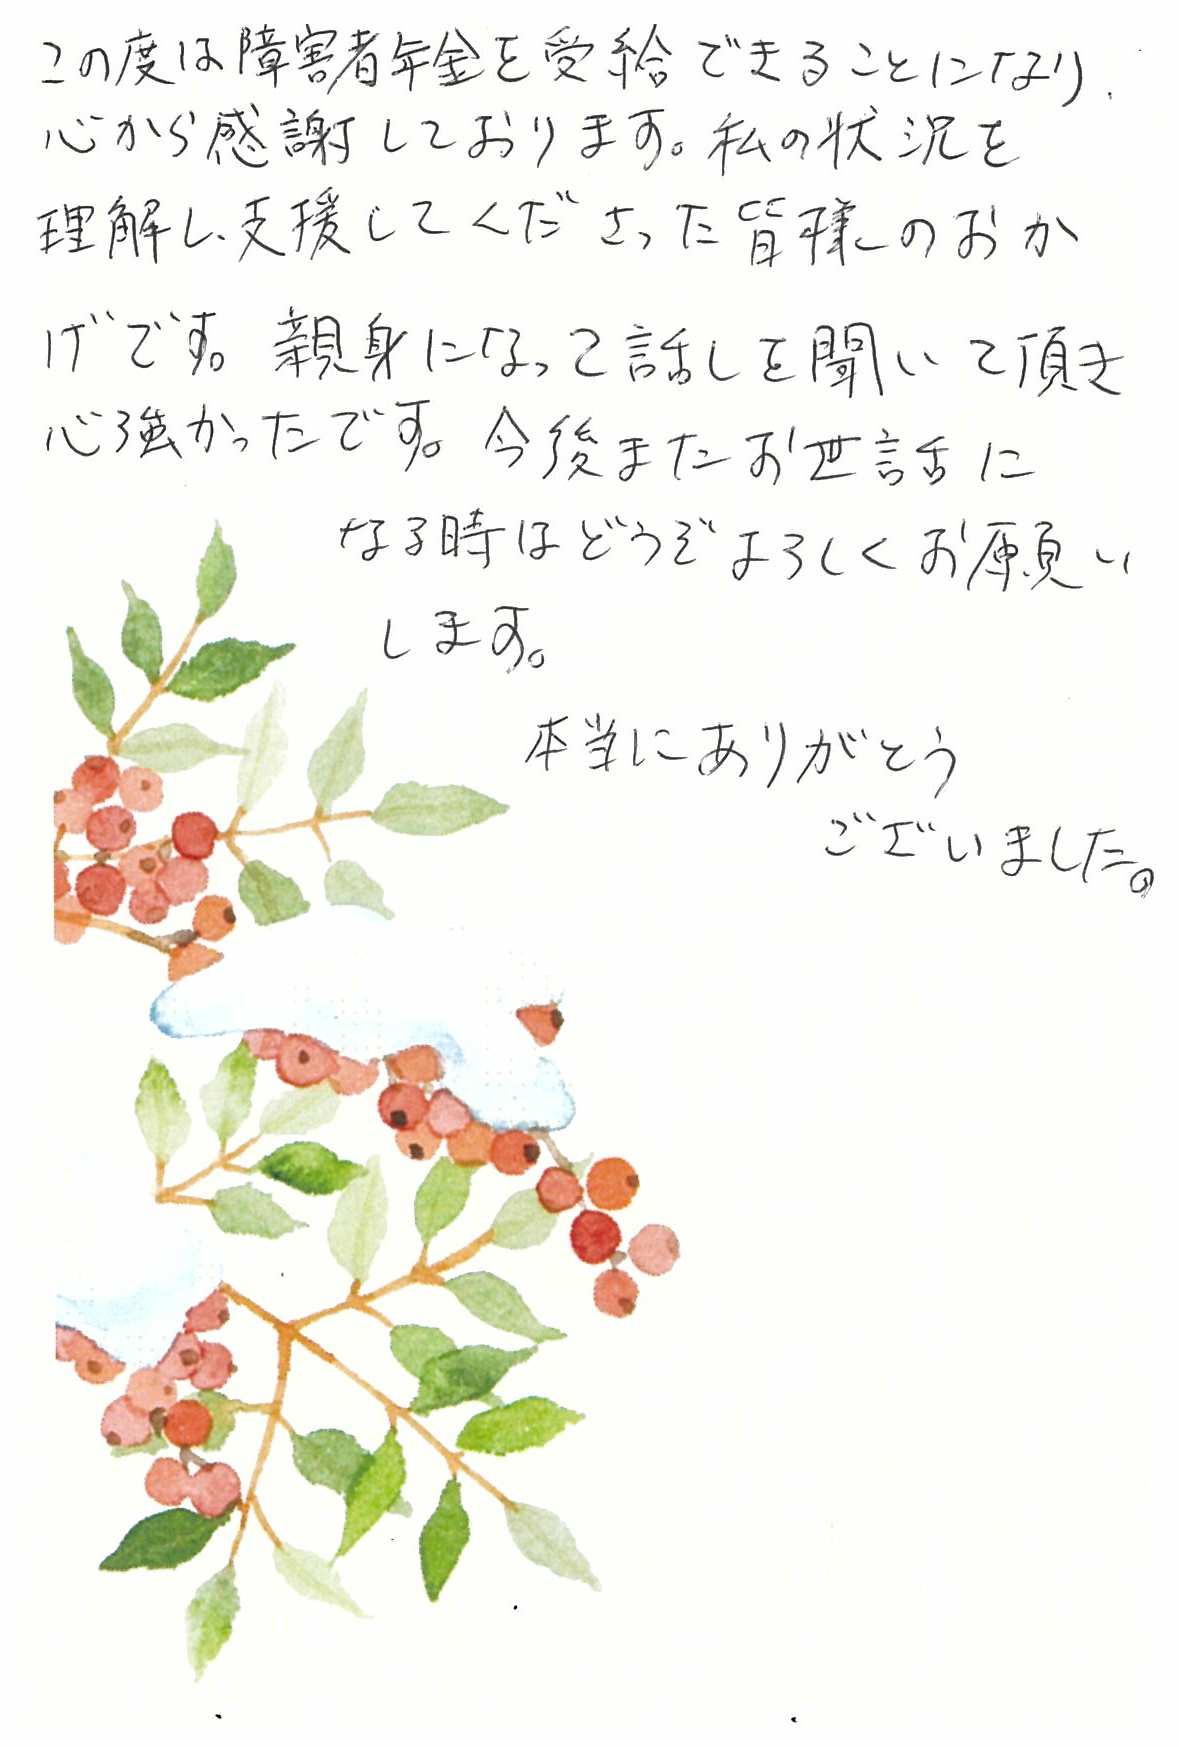 この度は障害者年金を受給できることになり、
心から感謝しております。私の状況を
理解し、支援してくださった皆様のおか
げです。親身になって話しを聞いて頂き
心強かったです。今後またお世話に
なる時はどうぞよろしくお願い
します。
本当にありがとう
ございました。